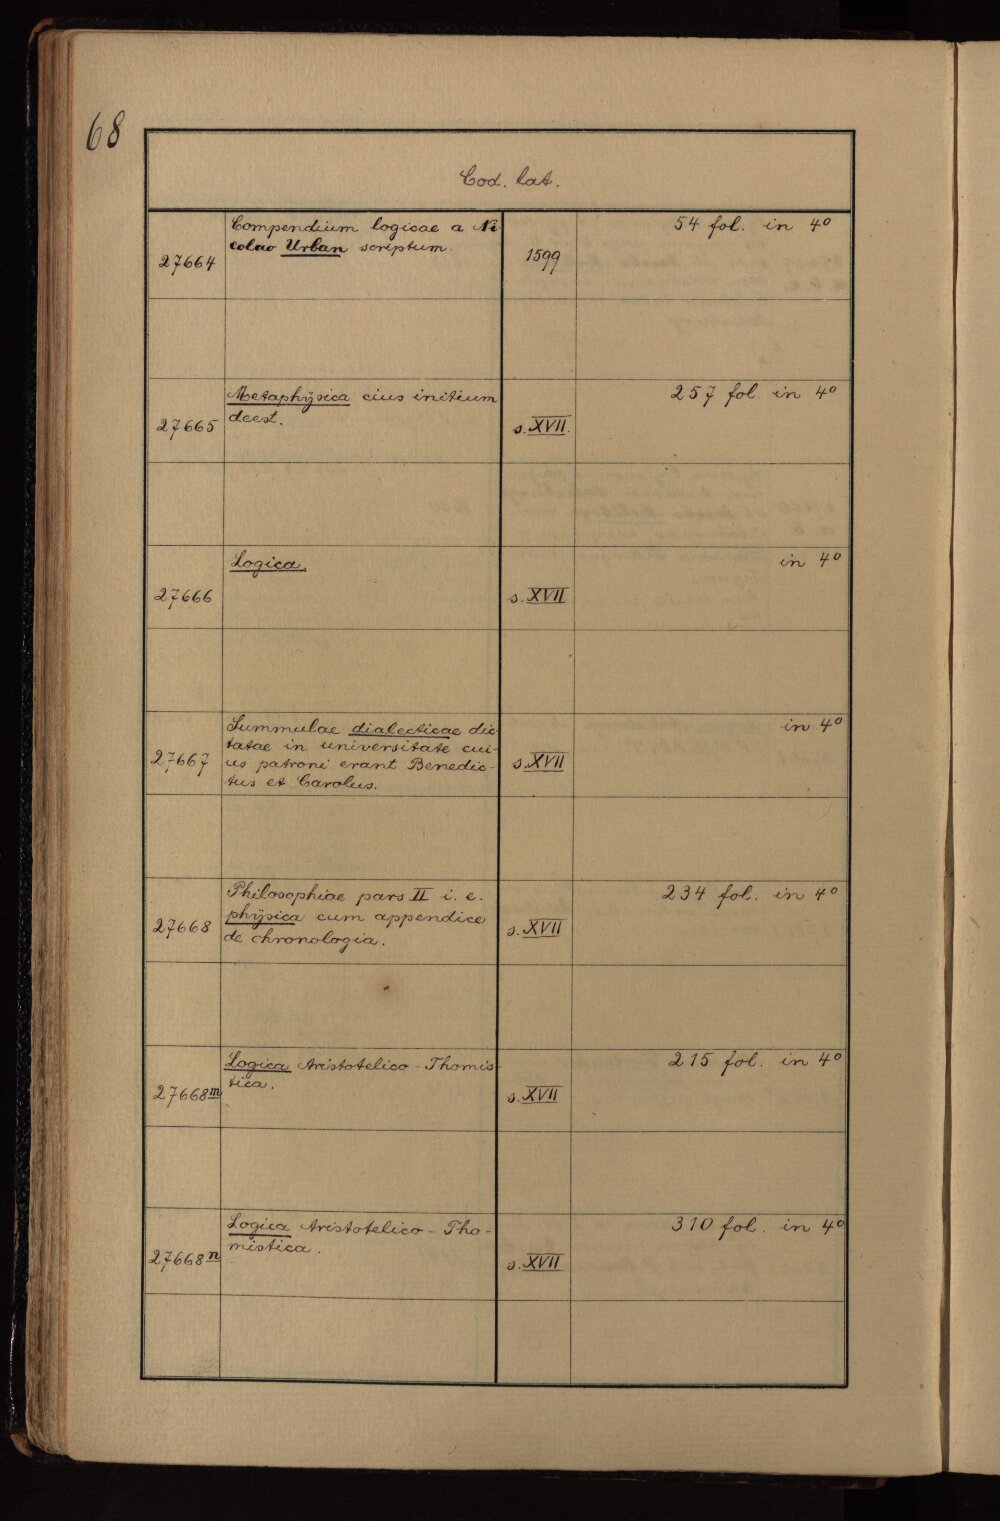 68
Cod. lat.
Compendium logicae a Ni
colao Urban scriptum.
27664
1599
54 fol. in 4⁰
Metaphÿsica cius initium
deest.
27665
s. XVII.
257 fol. in 4⁰
Logica.
27666
s. XVII
in 4⁰
Summulae dialecticae dic
tatae in universitate cui-
us patroni erant Benedic-
tus et Carolus.
27667
s. XVII
in 4⁰
Philosophiae pars II i. e.
phÿsica cum appendice
de chronologia.
27668
s. XVII
234 fol. in 4⁰
Logica Aristotelico - Thomis-
tica.
27668m
s. XVII
215 fol. in 4⁰
Logica Aristotelico - Tho-
mistica.
27668n
s. XVII
310 fol. in 4⁰